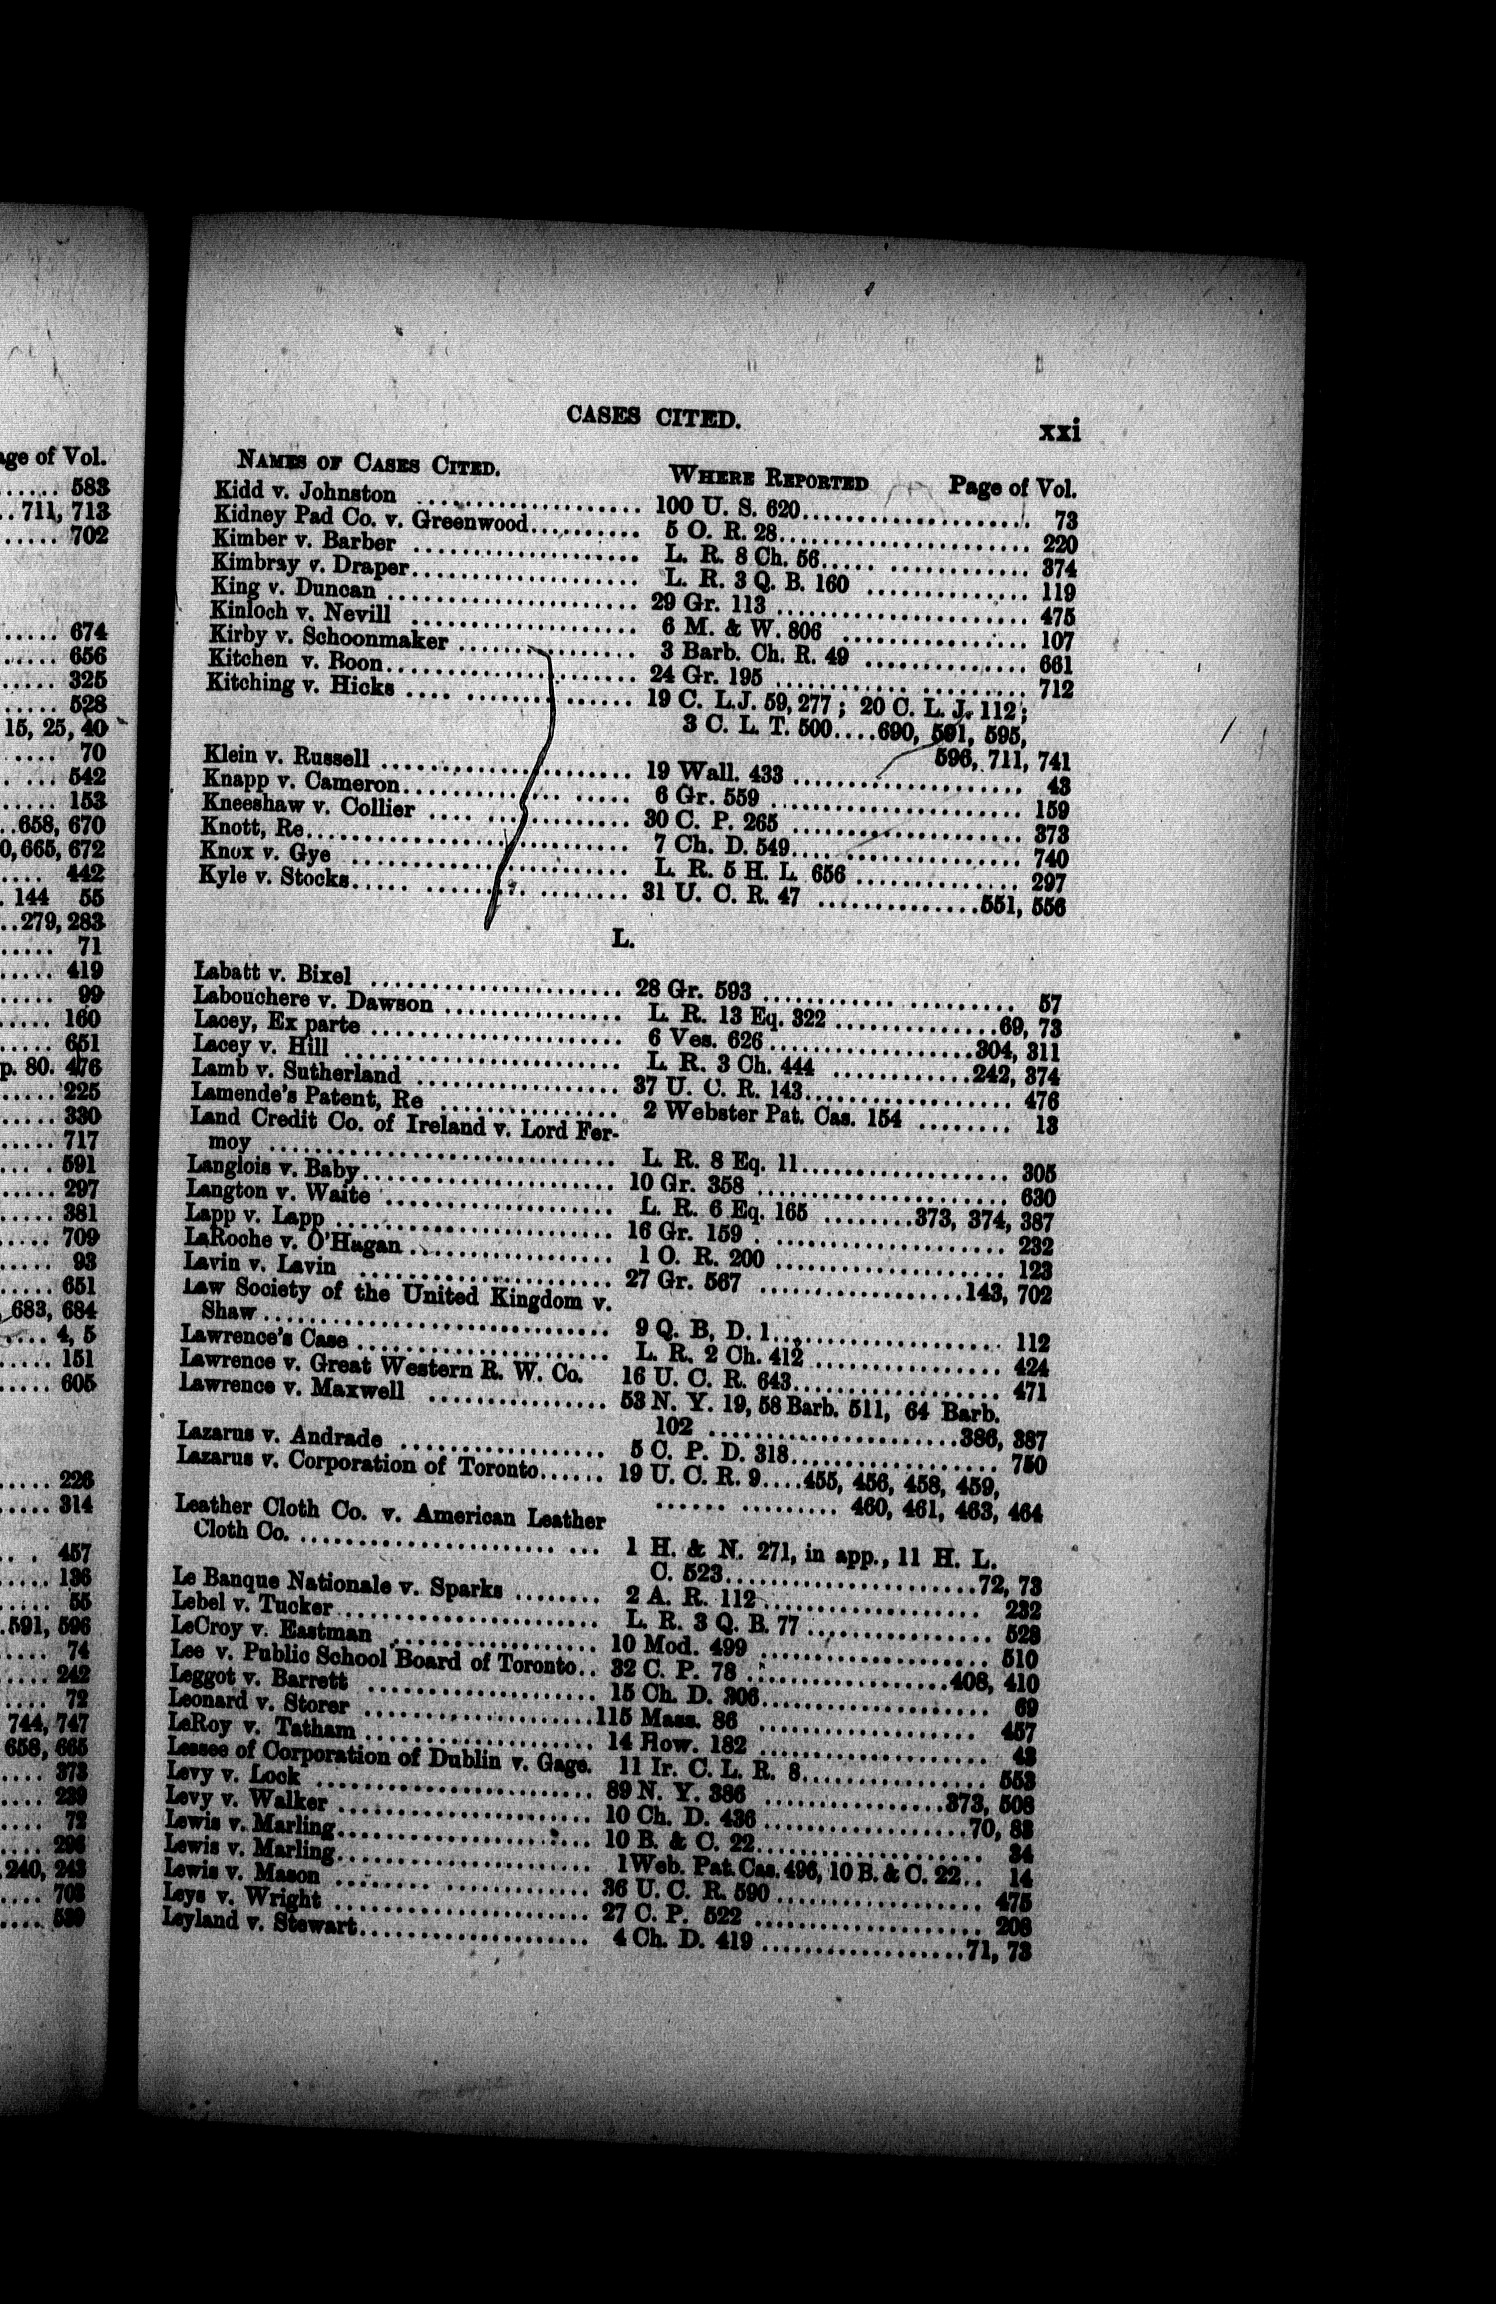 CASES CITED. xxi
NAMES OF CASES CITED. WHERE REPORTED Page of Vol.
Kidd v. Johnston .................... 100 U. S. 620.................... 73
Kidney Pad Co. v. Greenwood.......... 5 O. R. 28.................... 220
Kimber v. Barber .................... L. R. 8 Ch. 56..... ............ 374
Kimbray v. Draper.................... L. R. 3 Q. B. 160 .............. 119
King v. Duncan .................... 29 Gr. 113 .................... 475
Kinloch v. Nevill .................... 6 M. & W. 806 .............. 107
Kirby v. Schoonmaker ................ 3 Barb. Ch. R. 49 .............. 661
Kitchen v. Boon.................... 24 Gr. 195 .................... 712
Kitching v. Hicks .... ............... 19 C. L.J. 59, 277; 20 C. L. J. 112;
3 C. L. T. 500....690, 591, 595,
596, 711, 741
Klein v. Russell .................... 19 Wall. 433 .................... 43
Knapp v. Cameron.................... 6 Gr. 559 .................... 159
Kneeshaw v. Collier .... ............ 30 C. P. 265 .................... 373
Knott, Re.................... 7 Ch. D. 549.................... 740
Knox v. Gye .................... L. R. 5 H. L. 656 .............. 297
Kyle v. Stocks..... .................... 31 U. C. R. 47 ..............551, 556
L.
Labatt v. Bixel .................... 28 Gr. 593 .................... 57
Labouchere v. Dawson ................ L. R. 13 Eq. 322 ..............69, 73
Lacey, Ex parte .................... 6 Ves. 626..................304, 311
Lacey v. Hill .................... L. R. 3 Ch. 444 ............242, 374
Lamb v. Sutherland .................... 37 U. C. R. 143.................... 476
Lamende's Patent, Re ................ 2 Webster Pat. Cas. 154 ........ 13
Land Credit Co. of Ireland v. Lord Fer-
moy .................... L. R. 8 Eq. 11.................... 305
Langlois v. Baby.................... 10 Gr. 358 .................... 630
Langton v. Waite .................... L. R. 6 Eq. 165 ........373, 374, 387
Lapp v. Lapp .................... 16 Gr. 159 . .................... 232
LaRoche v. O'Hagan.................... 1 O. R. 200 .................... 123
Lavin v. Lavin .................... 27 Gr. 567 ................143, 702
Law Society of the United Kingdom v.
Shaw.................... 9 Q. B, D. 1.................... 112
Lawrence's Case .................... L. R. 2 Ch. 412 .................. 424
Lawrence v. Great Western R. W. Co. 16 U. C. R. 643.................... 471
Lawrence v. Maxwell ................ 53 N. Y. 19, 58 Barb. 511, 64 Barb.
102 ....................386, 387
Lazarus v. Andrade .................... 5 C. P. D. 318.................... 750
Lazarus v. Corporation of Toronto...... 19 U. C. R. 9....455, 456, 458, 459,
...... ......... 460, 461, 463, 464
Leather Cloth Co. v. American Leather
Cloth Co. ........................ ... 1 H. & N. 271, in app., 11 H. L.
C. 523....................72, 73
Le Banque Nationale v. Sparks ........ 2 A. R. 112.................... 232
Lebel v. Tucker.................... L. R. 3 Q. B. 77 .................. 528
LeCroy v. Eastman .................... 10 Mod. 499 .................... 510
Lee v. Public School Board of Toronto.. 32 C. P. 78 ....................408, 410
Leggot v. Barrett .................... 15 Ch. D. 306.................... 69
Leonard v. Storer ....................115 Mass. 86 .................... 457
LeRoy v. Tatham .................... 14 How. 182 .................... 43
Lessee of Corporation of Dublin v. Gage. 11 Ir. C. L. R. 8................ 553
Levy v. Lock .................... 89 N. Y. 386 ................373, 508
Levy v. Walker .................... 10 Ch. D. 436 ..................70, 83
Lewis v. Marling.................... 10 B. & C. 22.................... 34
Lewis v. Marling.................... 1 Web. Pat. Cas. 496, 10 B. & C. 22.. 14
Lewis v. Mason ........ ............ 36 U. C. R. 590 .................... 475
Leys v. Wright .................... 27 C. P. 522 .................... 208
Leyland v. Stewart.................... 4 Ch. D. 419 ..................71, 73
age of Vol.
...... 583
..711, 713
...... 702
..... 674
..... 656
..... 325
..... 528
15, 25, 40
.... 70
.... 542
..... 153
..658, 670
0, 665, 672
.... 442
. 144 55
..279, 283
..... 71
..... 419
..... 99
..... 160
..... 651
p. 80. 476
..... 225
..... 330
..... 717
.... 591
..... 297
..... 381
..... 709
..... 93
..... 651
683, 684
.... 4, 5
..... 151
..... 605
.... 226
.... 314
.. . 457
..... 136
..... 55
.591, 596
.... 74
.... 242
.... 72
744, 747
658, 665
.... 373
.... 239
.... 72
.... 296
.240, 243
.... 703
.... 539